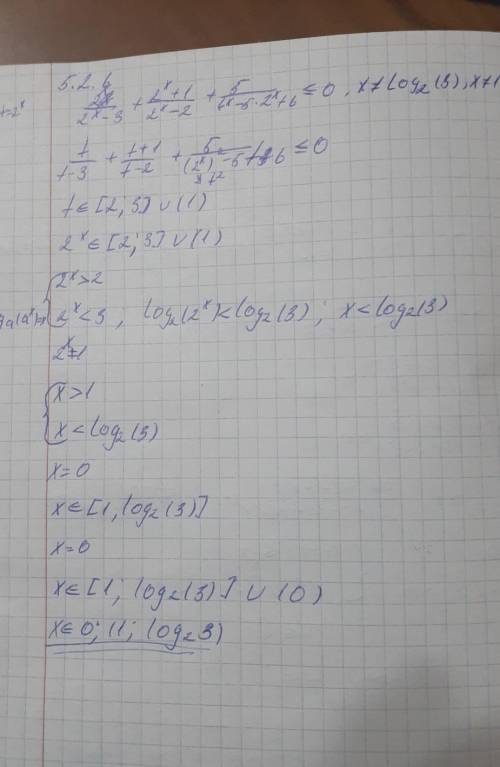 5.2.6
2^x/(2^x-3) + (2^x+1)/(2^x-2) + 5/(4^x-5·2^x+6) ≤ 0, x≠log₂(3), x≠1
t=2^x
t/(t-3) + (t+1)/(t-2) + 5/((2^x)²-5t+6) ≤ 0
t²
t∈[2;3]∪(1)
2^x∈[2;3]∪(1)
2^x>2
2^x<3, log₂(2^x)<log₂(3); x<log₂(3)
2^x=1
x>1
x<log₂(3)
x=0
x∈[1,log₂(3)]
x=0
x∈[1; log₂(3)]∪(0)
x∈0; (1; log₂3)